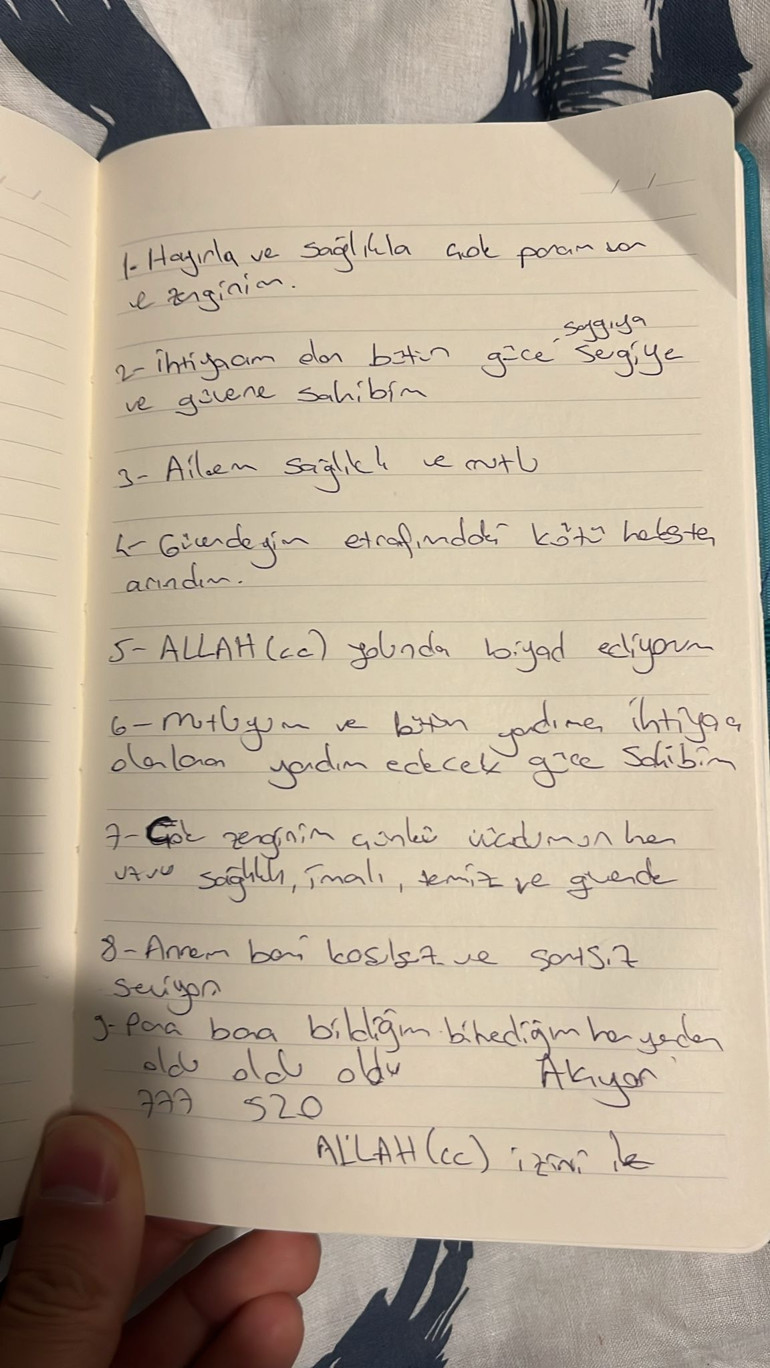 1- Hayırla ve sağlıkla çok param var
ve zenginim.
saygıya
2- ihtiyacım olan bütün güce, sevgiye
ve güvene sahibim
3- Ailem sağlıklı ve mutlu
4- Güvendeyim etrafımdaki kötü
arındım.
5- ALLAH (cc) yolunda ediyorum
6- mutluyum ve bütün yardıma ihtiyacı
olanlara yardım edecek güce Sahibim
7- Çok zenginim çünkü vücudumun her
uzvu sağlıklı, temiz ve güvende
8- Annem beni koşulsuz ve sonsuz
seviyor
9- Para bana bildiğim bilmediğim her yerden
oldu oldu oldu Akıyor
777 520
ALLAH (cc) izini ile